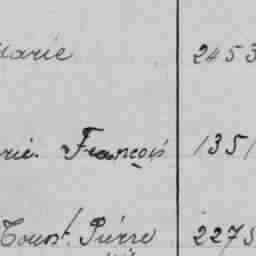 Marie 2453
rie. François 1351
Toust. Pierre 2275